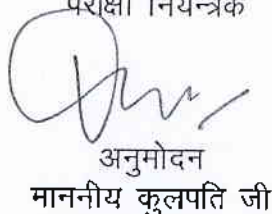 परीक्षा नियन्त्रक
अनुमोदन
माननीय कुलपति जी